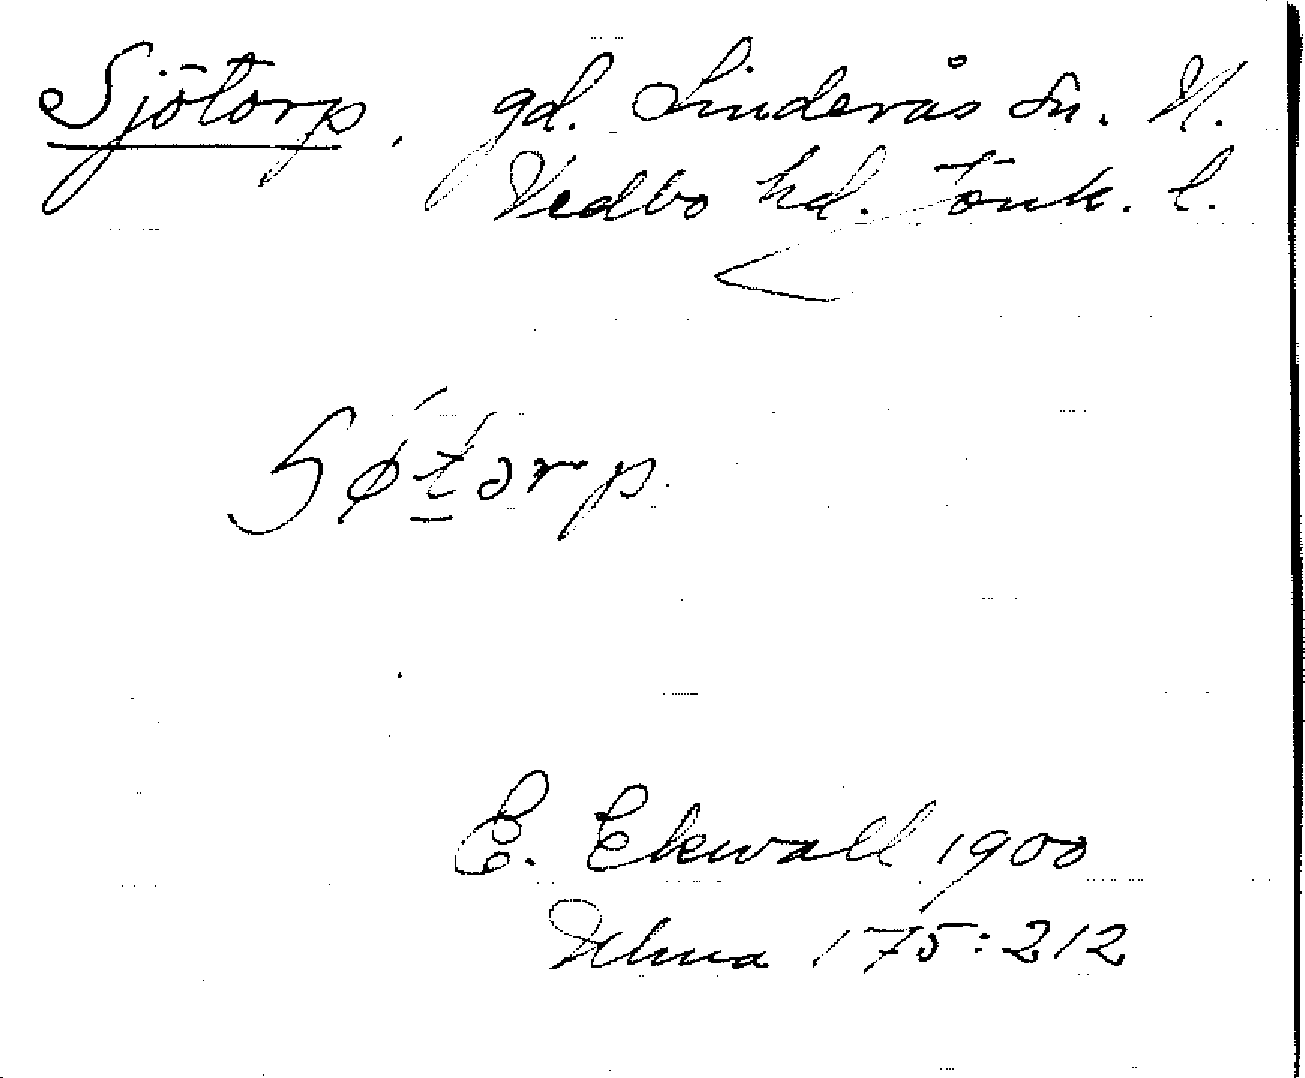 Sjötorp, gd. Linderås sn. N.
Vedbo hd. Jönk. l.
E. Ekwall 1900
Ulma 175:212